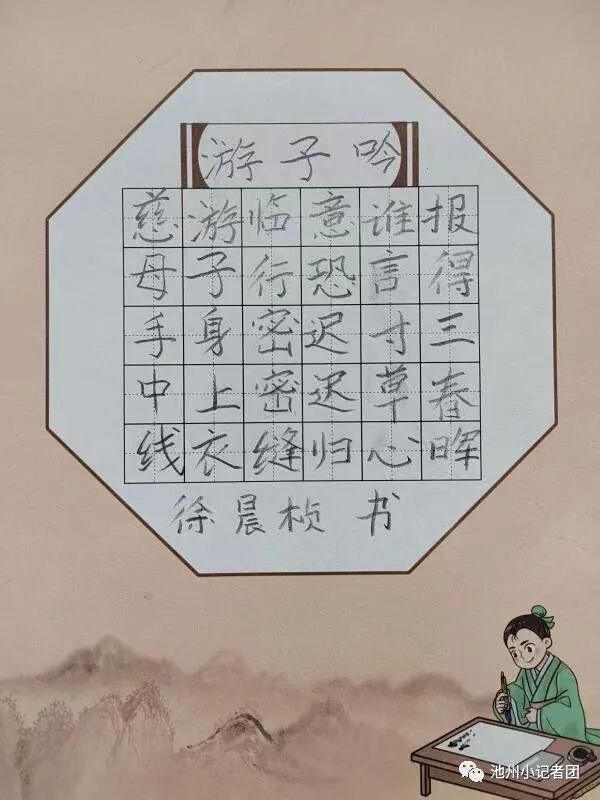 游子吟
慈母手中线
游子身上衣
临行密密缝
意恐迟迟归
谁言寸草心
报得三春晖
徐晨桢 书
池州小记者团